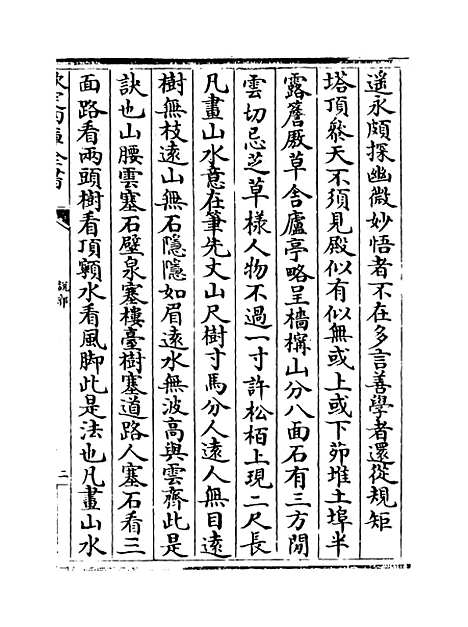 遥永頗探幽微妙悟者不在多言善學者還從規矩
塔頂參天不須見殿似有似無或上或下茆堆土埠半
露簷廒草舍廬亭略呈檣檸山分八面石有三方閒
雲切忌芝草樣人物不過一寸許松栢上現二尺長
凡畫山水意在筆先丈山尺樹寸馬分人遠人無目遠
樹無枝遠山無石隱隱如眉遠水無波高與雲齊此是
訣也山腰雲塞石壁泉塞樓臺樹塞道路人塞石看三
面路看兩頭樹看頂𩕳水看風脚此是法也凡畫山水
說郛
二